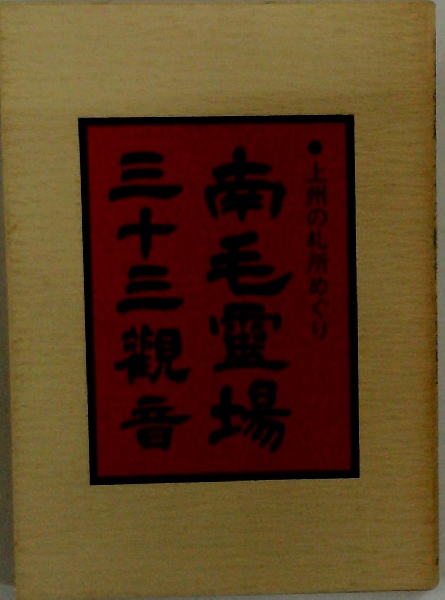 ●上州の札所めぐり
南毛靈場
三十三觀音